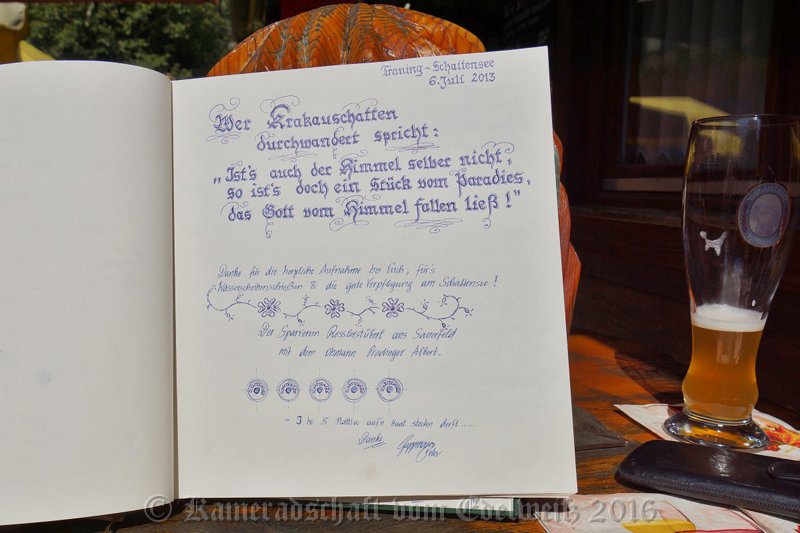 Traning - Schattensee
6. Juli 2013
Wer Krakauschatten
durchwandert spricht :
„Ist's auch der Himmel selber nicht,
so ist's doch ein Stück vom Paradies,
das Gott vom Himmel fallen ließ !"
Danke für die herzliche Aufnahme bei Euch, für's
Wasserscheibenschießen & die gute Verpflegung am Schattensee !
Der Sparverein aus Sauerfeld
mit dem Obmann Prodinger Albert.
- I ho 5 aufn steckn derft.....
Danke
© Kameradschaft vom Edelweiß 2016